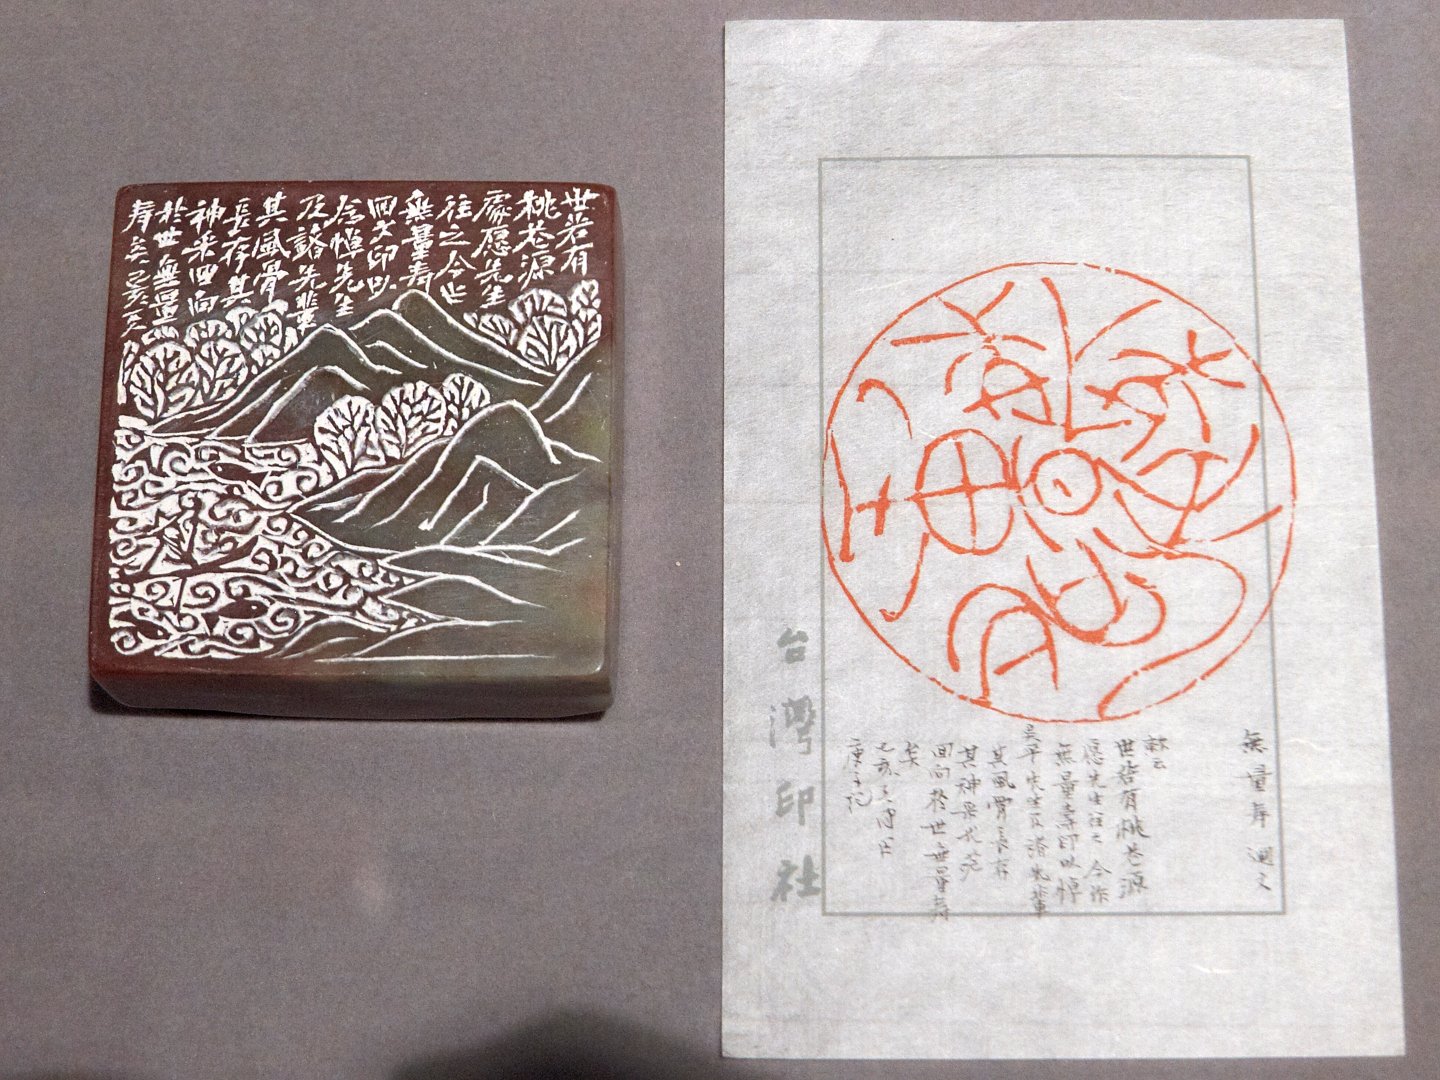 世若有
桃花源
處愿先生
往之今
無量壽
回文印以
念悼先生
及諸先輩
其風骨
長存其
神采回向
於世無量
壽矣己亥夏
無量壽 迴文
款云
世若有桃花源
愿先生往之今作
無量壽印以悼
吳平先生及諸先輩
其風骨長存
其神采
回向於世無量壽
矣
己亥夏
庚子記
台灣印社